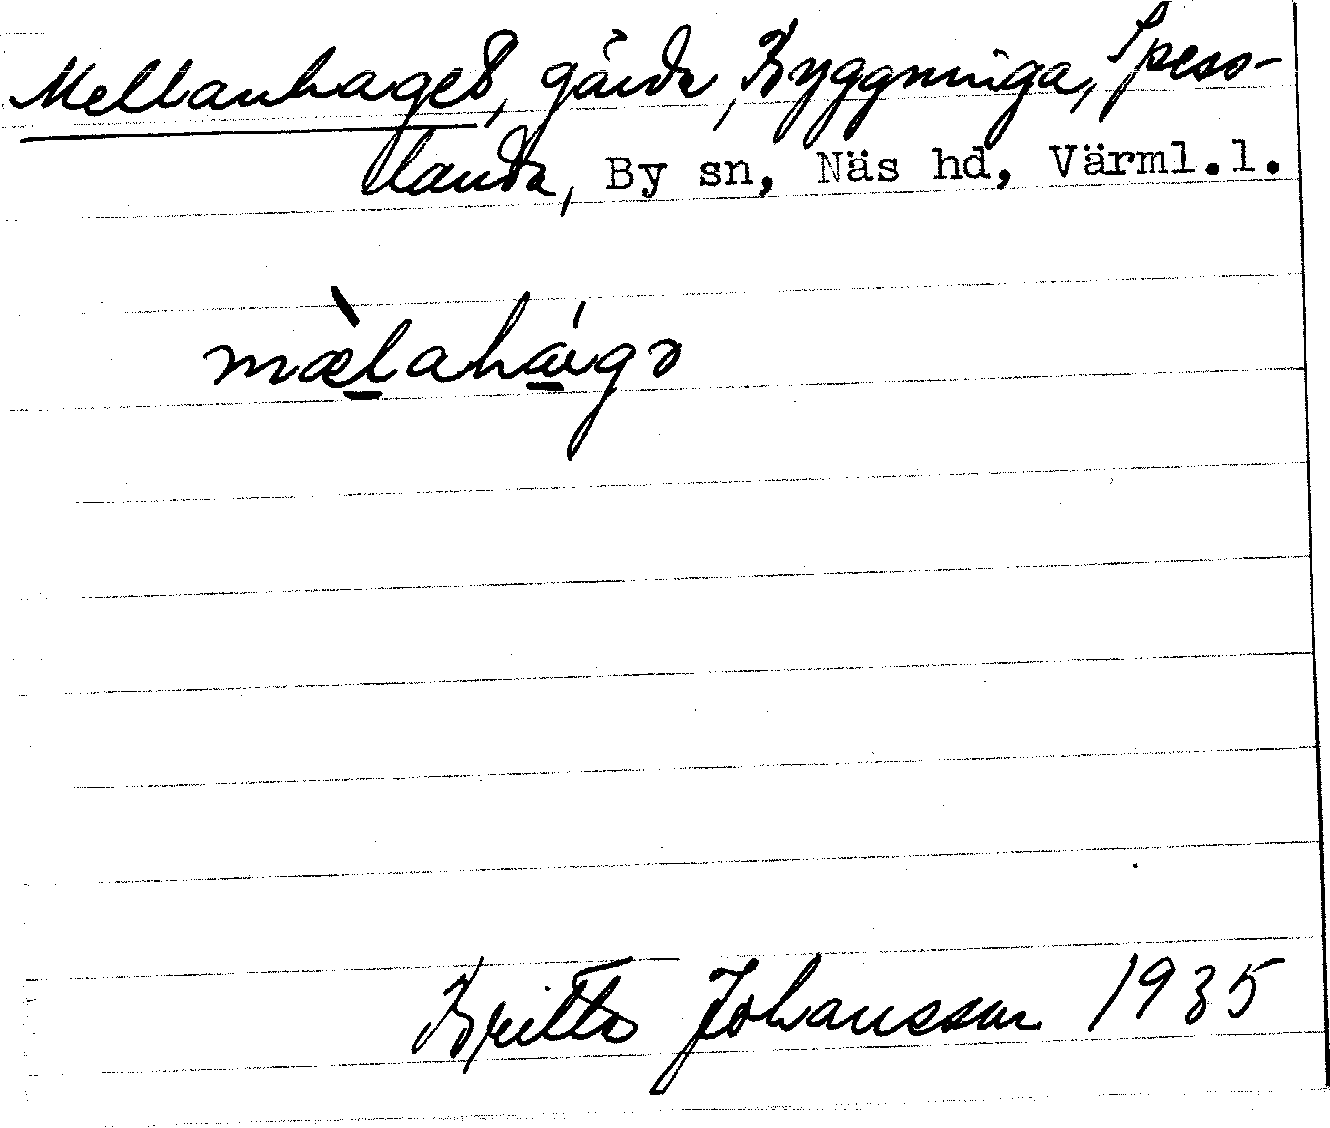 Mellanhaget, gärde, Byggninga, Spess-
landa, By sn, Näs hd, Värml.l.
mæ̀laháigə
Britta Johansson 1935